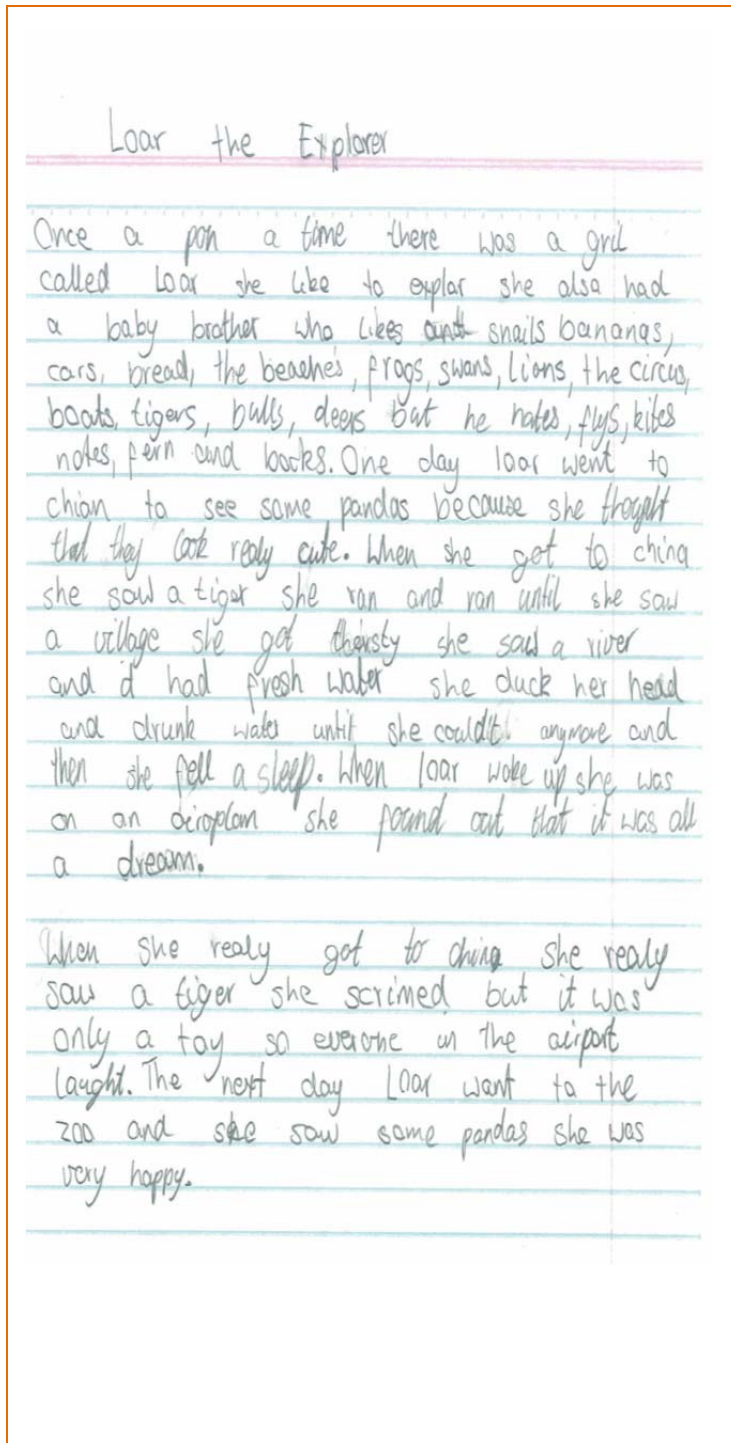 Loar the Explorer
Once a pon a time there was a gril
called Loar she like to explar she alsa had
a baby brother who likes snails bananas,
cars, bread, the beaches, frogs, swans, lions, the circus,
boats, tigers, bulls, deers but he hates, flys, kites
notes, fern and books. One day loar went to
chian to see some pandas because she thoght
that they look realy cute. When she got to china
she saw a tiger she ran and ran until she saw
a village she got thirsty she saw a river
and it had fresh water she duck her head
and drunk water until she could't anymore and
then she fell a sleep. When loar woke up she was
on an airoplam she found out that it was all
a dream.
When she realy got to china she realy
saw a tiger she scrimed but it was
only a toy so everone in the airport
laught. The next day Loar want to the
zoo and she saw some pandas she was
very happy.